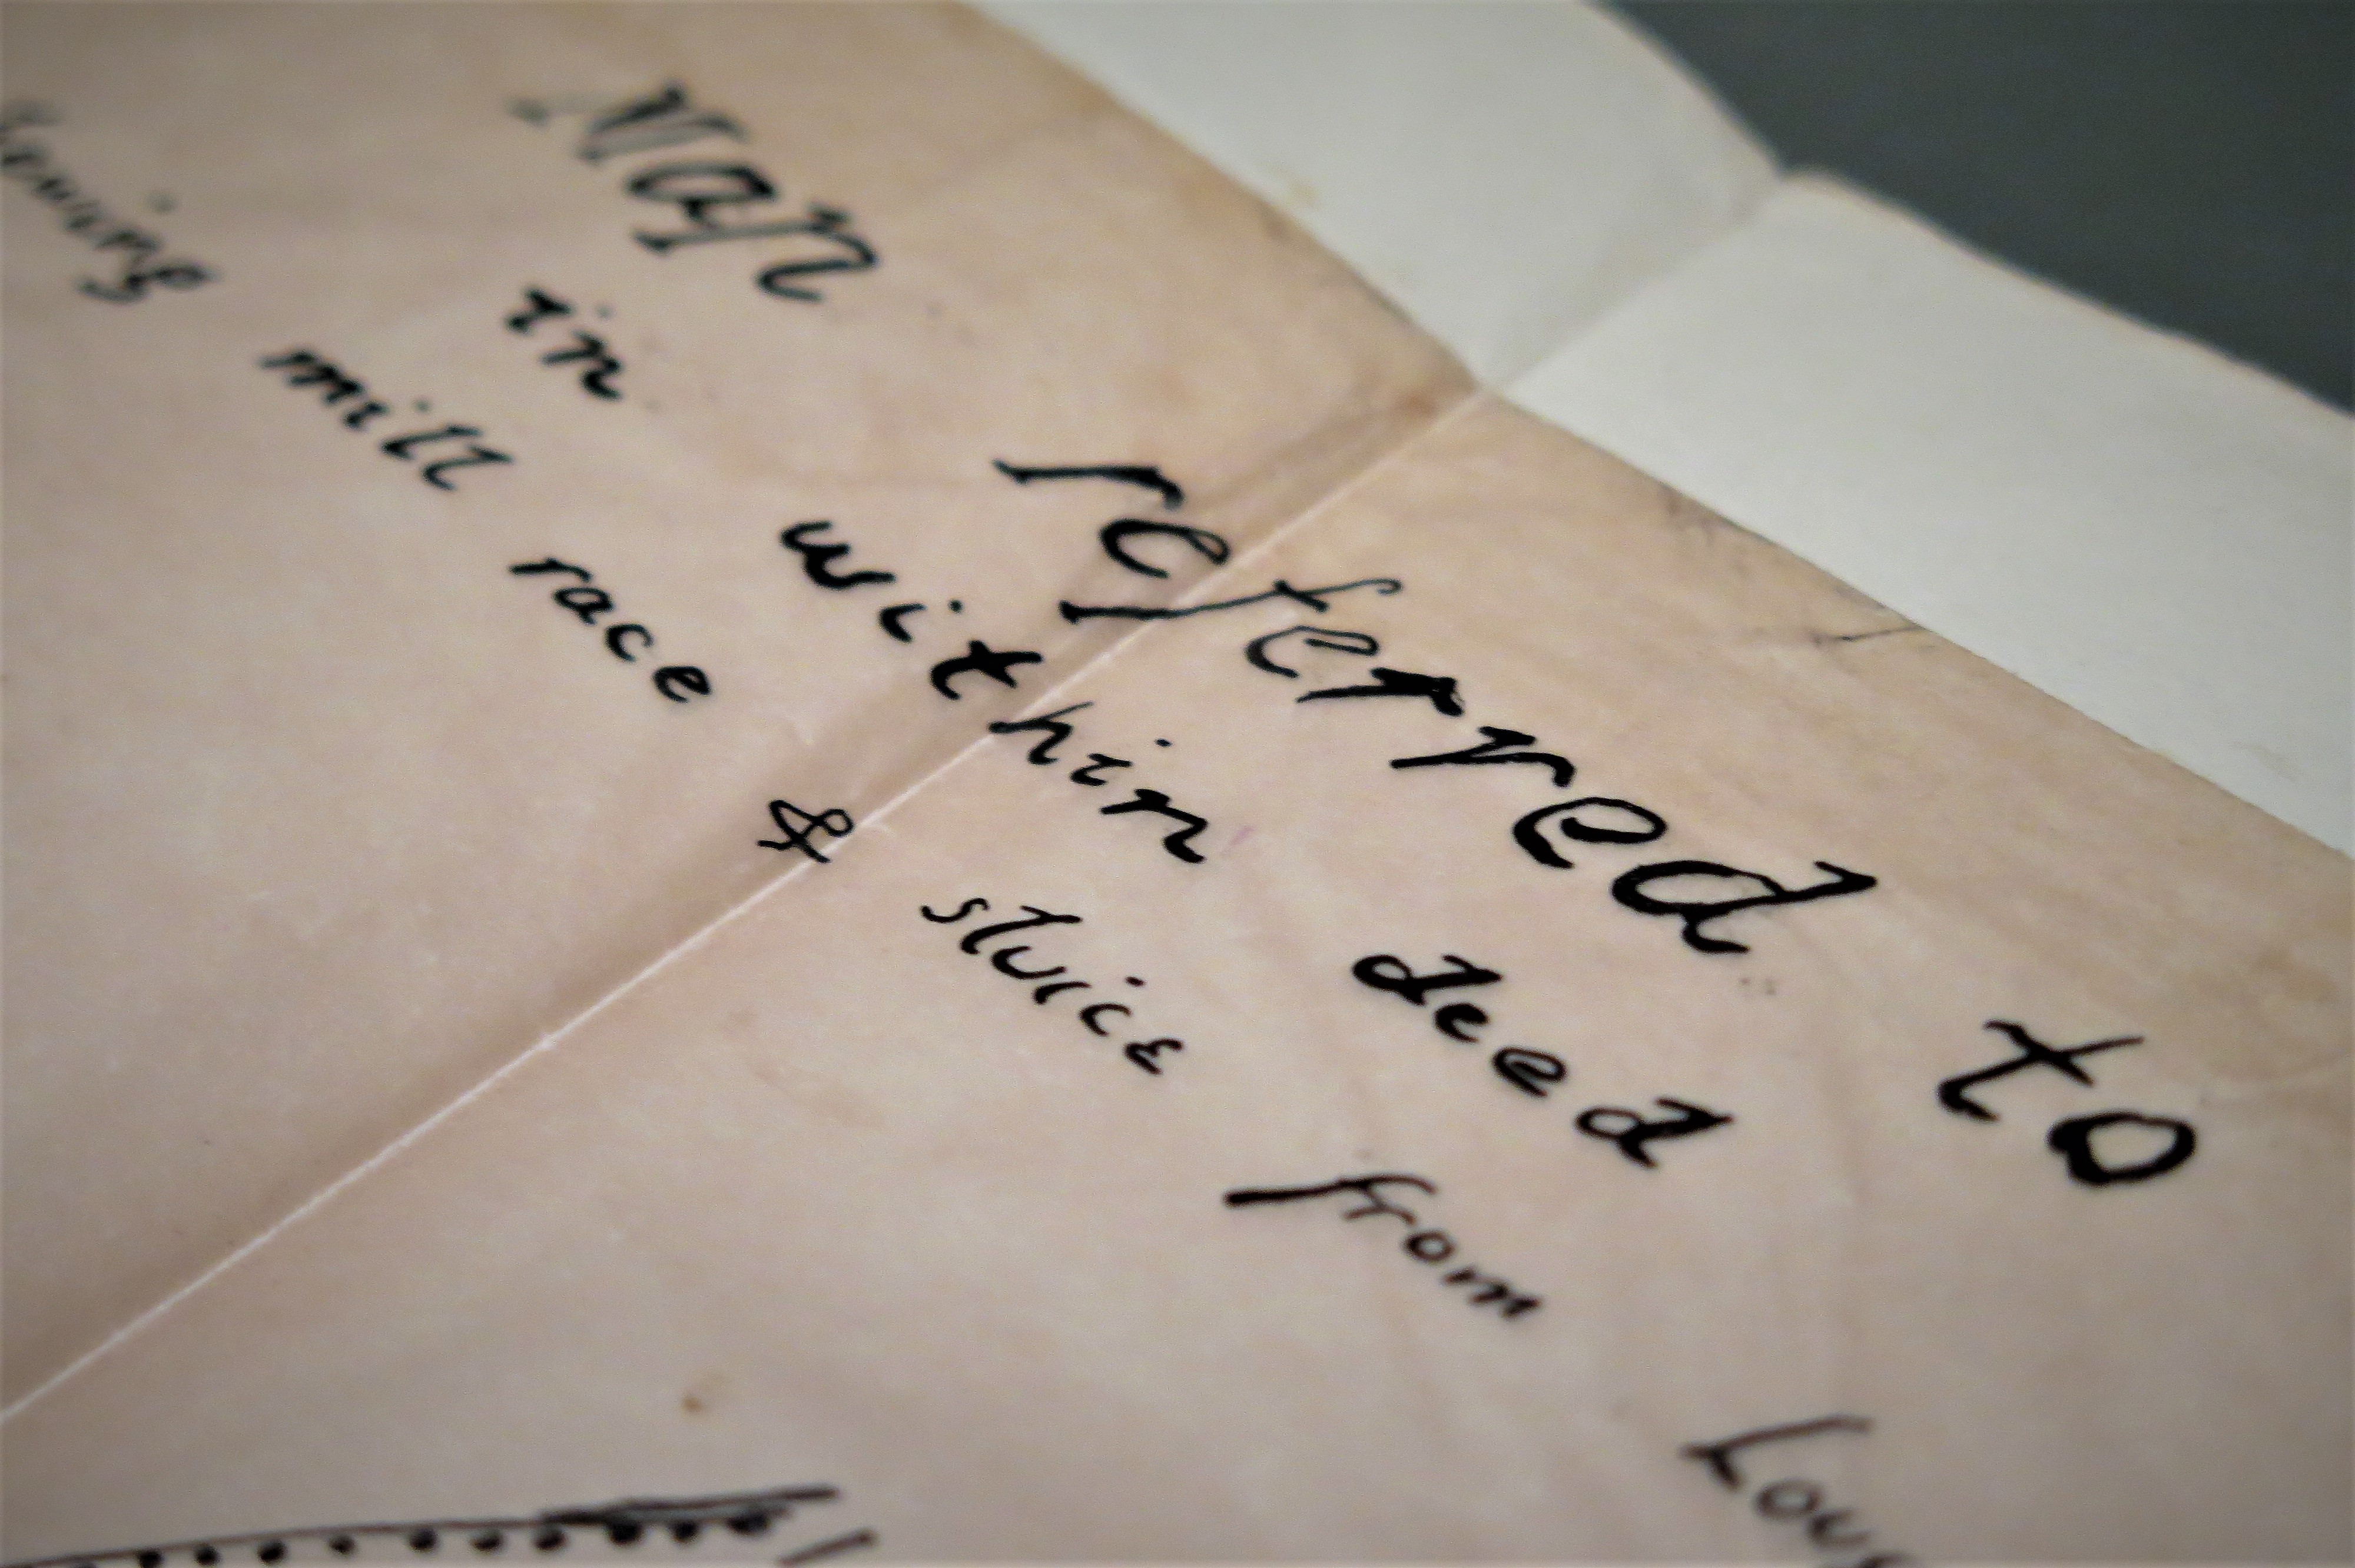 Map referred to
in within deed
showing mill race & sluice from Loug